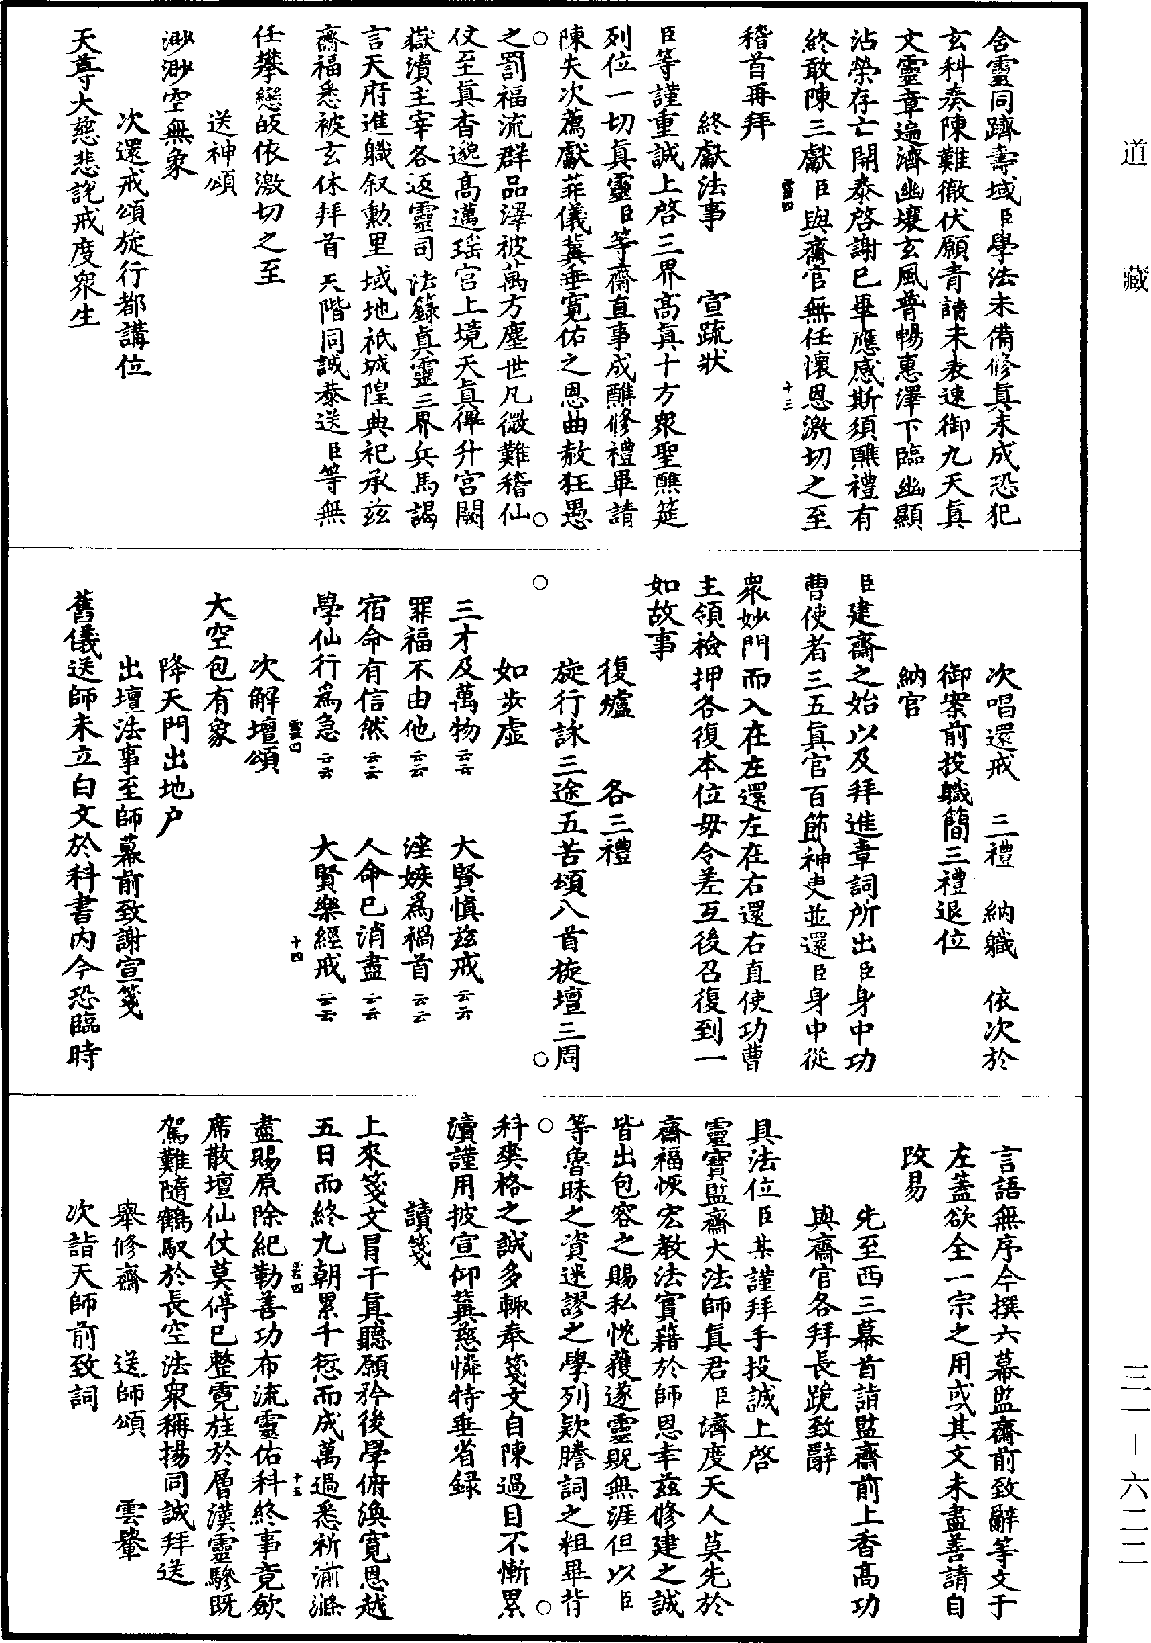 道藏
含靈同躋壽域臣學法未備修真未成恐犯
玄科奏陳難徹伏願青詞朱表速御九天真
文靈章遍濟幽壤玄風普暢惠澤下臨幽顯
沾榮存亡開泰啓謝已畢應感斯須醮禮有
終敢陳三獻臣與齋官無任懷恩激切之至
稽首再拜
終獻法事　宣疏狀
臣等謹重誠上啓三界高真十方衆聖醮筵
列位一切真靈臣等齋直事成醮修禮畢請
陳失次薦獻菲儀冀垂寬佑之恩曲赦狂愚
之罰福流群品澤被萬方塵世凡微難稽仙
仗至真杳邈高邁瑶宮上境天真俾升宮闕
嶽瀆主宰各返靈司法籙真靈三界兵馬謁
言天府進職叙勳里域地祇城隍典祀承兹
齋福悉被玄休拜首天階同誠㳟送臣等無
任攀戀皈依激切之至
送神頌
渺渺空無象
次還戒頌旋行都講位
天尊大慈悲說戒度衆生
次唱還戒　三禮　納職　依次於
御案前投職簡三禮退位
納官
臣建齋之始以及拜進章詞所出臣身中功
曹使者三五真官百節神吏並還臣身中從
衆妙門而入在左還左在右還右直使功曹
主領檢押各復本位毋令差互後召復到一
如故事
復爐　各三禮
旋行詠三途五苦頌八首旋壇三周
如步虛
三才及萬物云云　大賢慎兹戒云云
罪福不由他云云　淫嫉爲禍首云云
宿命有信然云云　人命已消盡云云
學仙行爲急云云　大賢樂經戒云云
次解壇頌
大空包有象
降天門出地户
出壇法事至師幕前致謝宣箋
舊儀送師未立白文於科書内今恐臨時
言語無序今撰六幕監齋前致辭等文于
左蓋欲全一宗之用或其文未盡善請自
改易
先至西三幕首詣監齋前上香高功
與齋官各拜長跪致辭
具法位臣某謹拜手投誠上啓
靈寶監齋大法師真君臣濟度天人莫先於
齋福恢宏教法實藉於師恩幸兹修建之誠
皆出包容之賜私忱獲遂靈貺無涯但以臣
等魯昧之資迷謬之學列欵謄詞之粗畢背
科爽格之誠多輒奉箋文自陳過目不慚累
瀆謹用披宣仰冀慈憐特垂省録
讀箋
上來箋文冒干真聽願矜後學俯渙寬恩越
五日而終九朝累千愆而成萬過悉祈湔滌
盡賜原除紀勤善功布流靈佑科終事竟歛
席散壇仙仗莫停已整霓旌於層漢靈驂旣
駕難隨鶴馭於長空法衆稱揚同誠拜送
舉修齋　送師頌　雲軬
次詣天師前致詞
三一—六二二